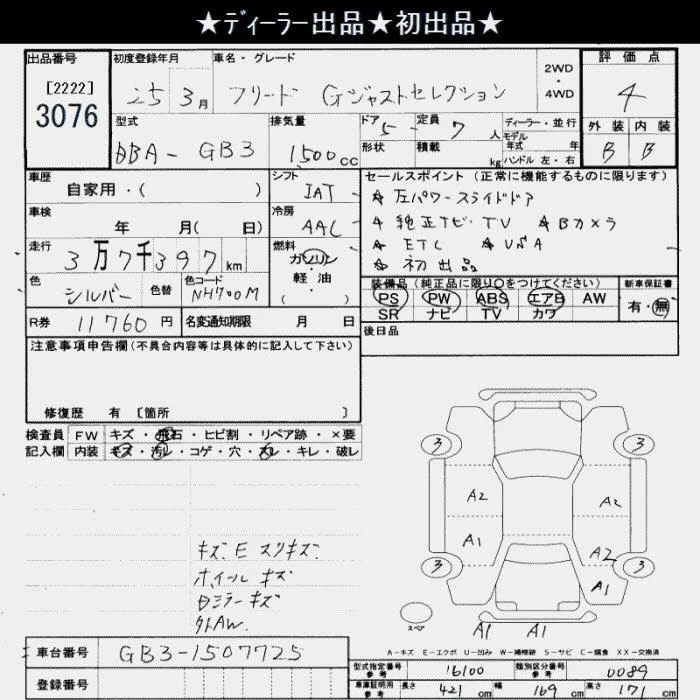 ★ディーラー出品★初出品★
出品番号 初度登録年月 車名・グレード 評価点
[2222] 25 3月 フリード Gジャストセレクション 2WD・4WD 4
3076
型式 排気量 ドア 5 定員 7人 ディーラー・並行 外装 内装
DBA-GB3 1500cc 形状 積載 kg モデル年式 年式 ハンドル左・右 B B
車歴 シフト セールスポイント(正常に機能するものに限ります)
自家用・( ) IAT ★左パワースライドドア
車検 冷房 ★純正ナビ・TV ★Bカメラ
年 月( 日) AAC ★ETC ★VSA
走行 燃料 ★初出品
3万7千397km ガソリン・軽油 ( )
装備品(純正品に限り○をつけてください) 新車保証書
色 シルバー 色替 色コード NH700M PS PW ABS エアB AW 有・無
SR ナビ TV カワ
R券 11760円 名変通知期限 月 日 後日品
注意事項申告欄(不具合内容等は具体的に記入して下さい)
修復歴 有 [箇所 ]
検査員 FW キズ・飛石・ヒビ割・リペア跡・×要
記入欄 内装 キズ・汚レ・コゲ・穴・スレ・キレ・破レ
3 3
A2 A2
A1 A2
3 A1 3
キズ.E スリキズ.
ホイール キズ
Dミラーキズ
外AW.
スペア A1 A1
A-キズ E-エクボ U-凹み W-補修跡 S-サビ C-腐食 XX-交換済
車台番号 GB3-1507725 型式指定番号 参考 16100 類別区分番号 参考 0089
登録番号 車庫証明用 参考 長さ 421cm 幅 169cm 高さ 171cm